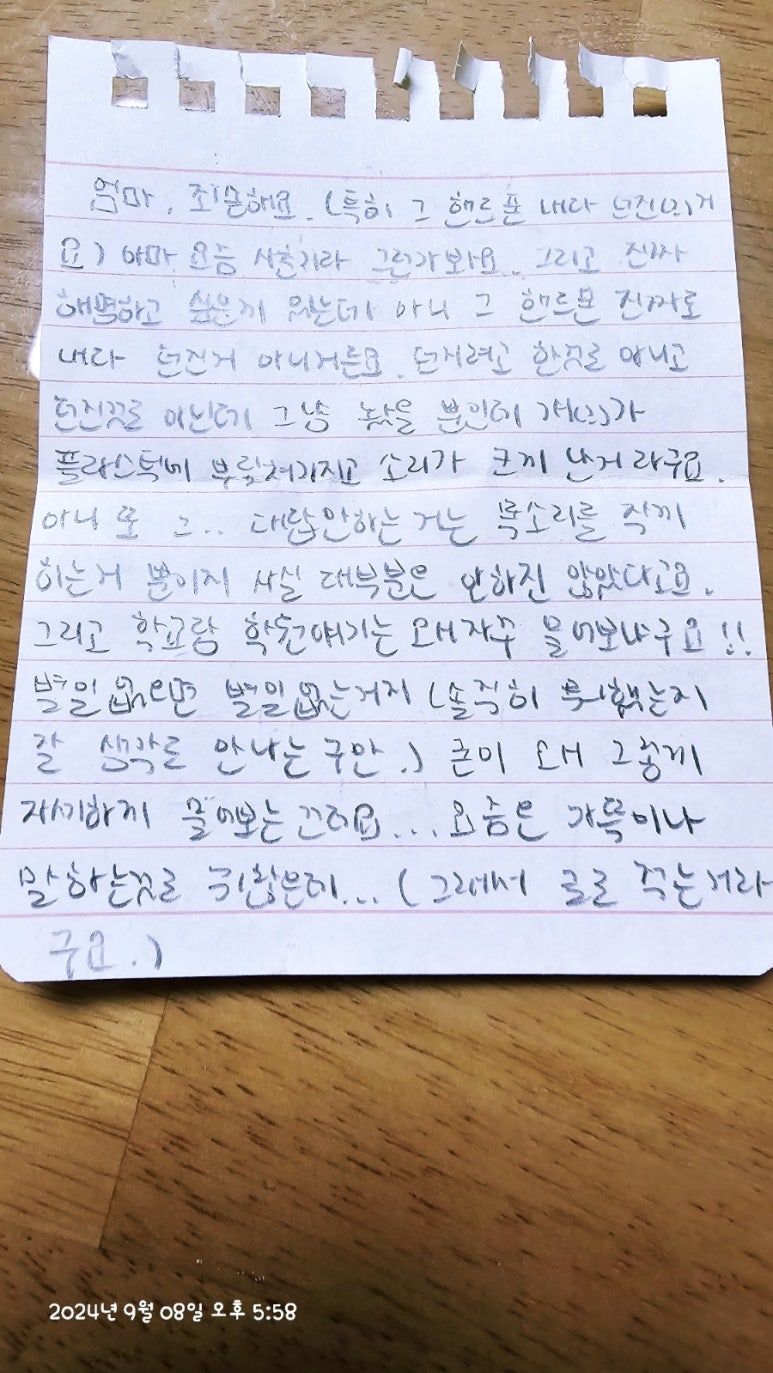 엄마, 죄송해요. (특히 그 핸드폰 내다 던진(?)거
요) 아마 요즘 사춘기라 그런가봐요. 그리고 진짜
해명하고 싶은게 있는데 아니 그 핸드폰 진짜로
내다 던진거 아니거든요. 던지려고 한것도 아니고
던진것도 아닌데 그냥 놨을 뿐인데 걔(?)가
플라스틱에 부딪쳐가지고 소리가 크게 난거라구요.
아니 또 그.. 대답안하는 거는 목소리를 작게
하는거 뿐이지 사실 대부분은 안하진 않았다고요.
그리고 학교랑 학원얘기는 왜 자꾸 물어보냐구요!!
별일없으면 별일없는거지 (솔직히 뭐했는지
잘 생각도 안나는구만.) 굳이 왜 그렇게
자세하게 물어보는건데요... 요즘은 가뜩이나
말하는것도 귀찮은데... (그래서 글로 적는거라
구요.)
2024년 9월 08일 오후 5:58